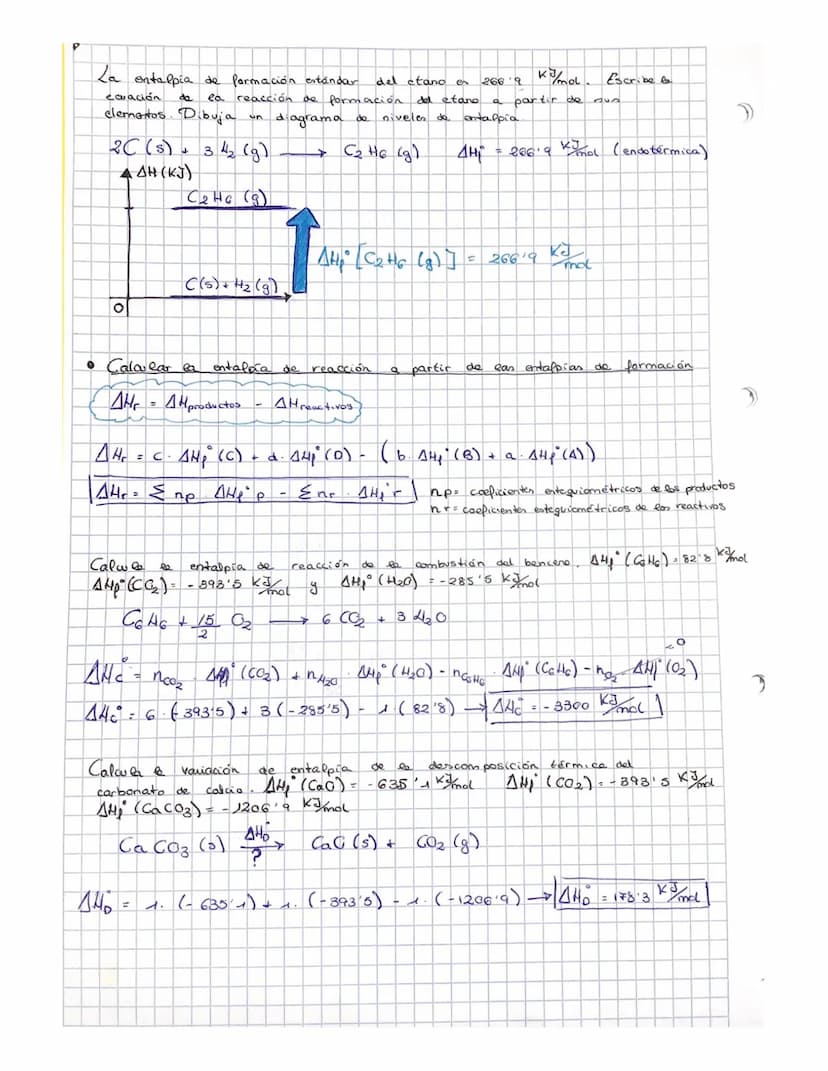 La entalpía de formación estándar del etano es 266'9 KJ/mol. Escribe la
ecuación de la reacción de formación del etano a partir de sus
elementos. Dibuja un diagrama de niveles de entalpía.
2C (s) + 3 H2 (g) → C2H6 (g) ΔHf° = 266'9 KJ/mol (endotérmica)
ΔH (KJ)
C2H6 (g)
ΔHf° [C2H6 (g)] = 266'9 KJ/mol
C(s) + H2 (g)
0
• Calcular la entalpía de reacción a partir de las entalpías de formación
ΔHr = ΔHproductos - ΔHreactivos
ΔHr = c · ΔHf° (C) + d · ΔHf° (D) - (b · ΔHf° (B) + a · ΔHf° (A))
ΔHr = Σ np · ΔHf° p - Σ nr · ΔHf° r np = coeficientes estequiométricos de los productos
nr = coeficientes estequiométricos de los reactivos
Calcula la entalpía de reacción de la combustión del benceno. ΔHf° (C6H6) = 82'8 KJ/mol
ΔHf° (CO2) = -393'5 KJ/mol y ΔHf° (H2O) = -285'5 KJ/mol
C6H6 + 15/2 O2 → 6 CO2 + 3 H2O
ΔHc° = nCO2 · ΔHf° (CO2) + nH2O · ΔHf° (H2O) - nC6H6 · ΔHf° (C6H6) - nO2 · ΔHf° (O2) 0
ΔHc° = 6 · (-393'5) + 3 (-285'5) - 1 (82'8) → ΔHc° = -3300 KJ/mol
Calcula la variación de entalpía de la descomposición térmica del
carbonato de calcio. ΔHf° (CaO) = -635'1 KJ/mol ΔHf° (CO2) = -393'5 KJ/mol
ΔHf° (CaCO3) = -1206'9 KJ/mol
CaCO3 (s) ΔHD° ? → CaO (s) + CO2 (g)
ΔHD° = 1 · (-635'1) + 1 · (-393'5) - 1 · (-1206'9) → ΔHD° = 178'3 KJ/mol